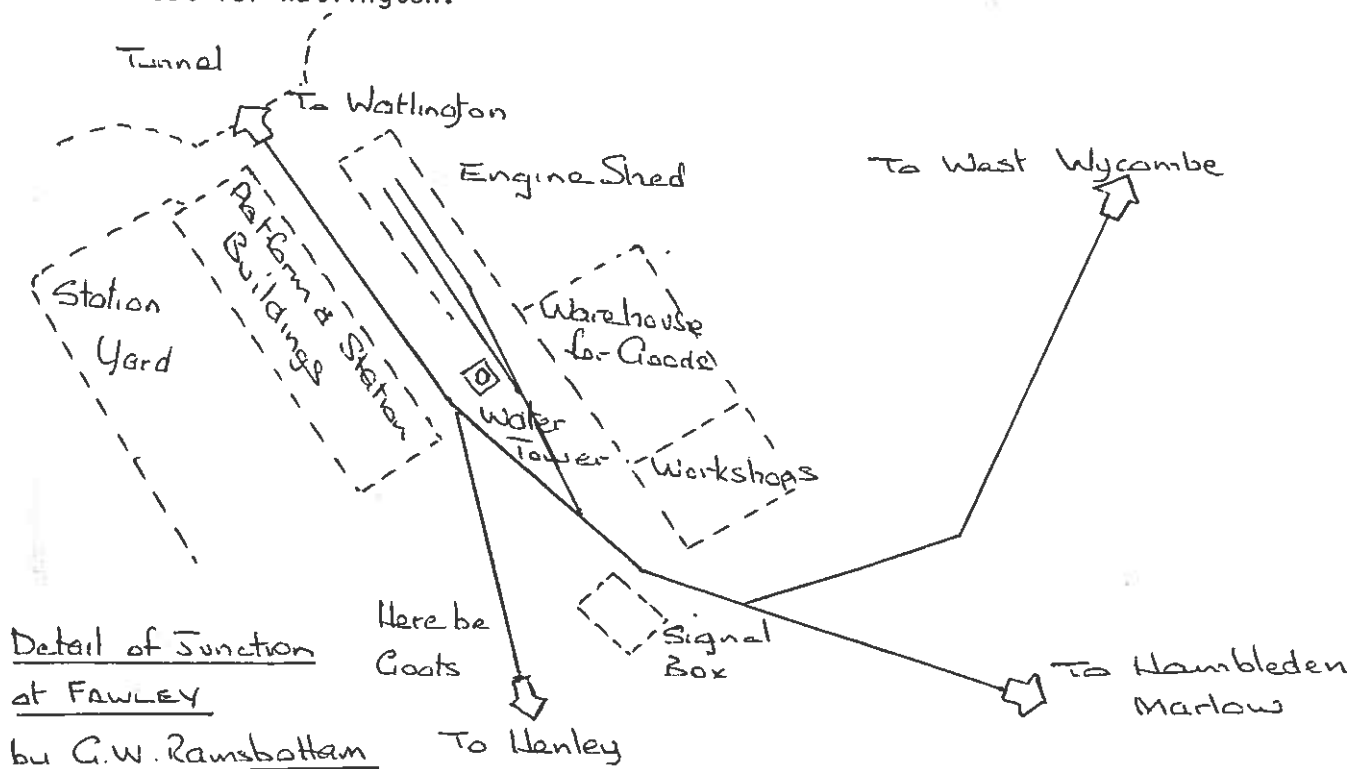 for Watlington.
Tunnel
To Watlington
Engine Shed
To West Wycombe
Platform & Station
Buildings
Station
Yard
Warehouse
for Goods
Water
Tower
Workshops
Here be
Goats
Signal
Box
To Hambleden
Marlow
To Henley
Detail of Junction
at FAWLEY
by G.W. Ramsbottam